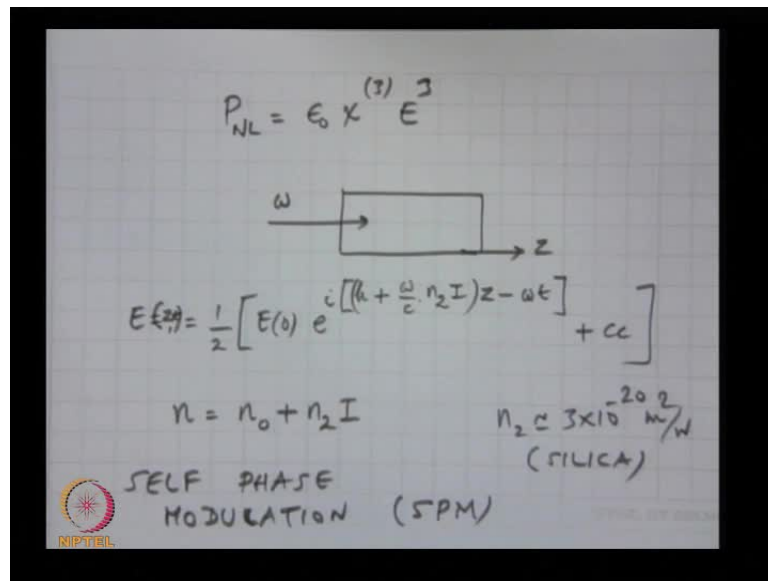 P_NL = ε₀ χ^(3) E^3
ω
z
= 1/2 [ E(0) e^{i[(k + ω/c · n₂ I) z - ωt]} + cc ]
n = n₀ + n₂ I
n₂ ≃ 3×10^-20 m²/W
(SILICA)
SELF PHASE
MODULATION (SPM)
NPTEL